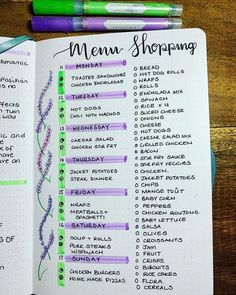 Menu Shopping
MONDAY
11
TOASTED SANDWICHES
CHICKEN ENCHILADAS
12 TUESDAY
HOT DOGS
CHILLI WITH NACHOS
13 WEDNESDAY
CAESAR SALAD
CHICKEN STIR FRY
14 THURSDAY
JACKET POTATOES
STEAK DINNER
15 FRIDAY
WRAPS
MEATBALLS +
SPAGHETTI
16 SATURDAY
SOUP + ROLLS
PORK STEAKS
W/SPINACH
17 SUNDAY
CHICKEN BURGERS
HOME MADE PIZZAS
BREAD
HOT DOG ROLLS
WRAPS
ROLLS
ENCHILADA MIX
SPINACH
RICE x 4
SLICED CHEESE
ONIONS
CHEESE
HOT DOGS
CAESAR SALAD MIX
GRILLED CHICKEN
BACON
STIR FRY SAUCE
STIR FRY VEGGIES
CHICKEN
JACKET POTATOES
STEAK
CHIPS
MANGE TOUT
BABY CORN
PEPPERS
CHICKEN GOUJONS
BABY LETTUCE
SALSA
OLIVES
CROISSANTS
JAM
FRUIT
CRISPS
BISCUITS
RICE CAKES
FLORA
CEREALS